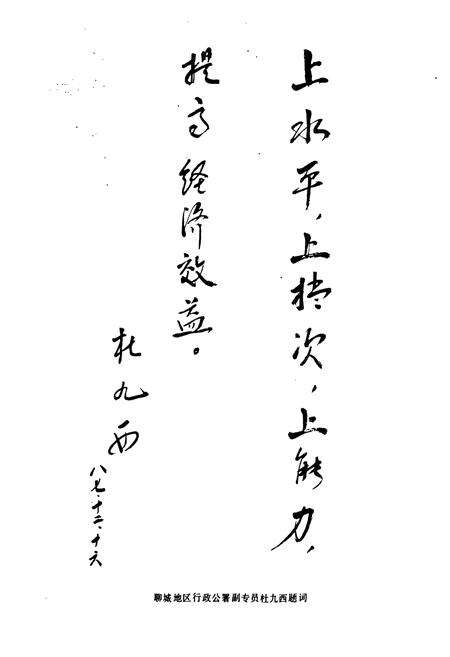 上水平，上档次，上能力，
提高经济效益。
杜九西
八七·十二·十六
聊城地区行政公署副专员杜九西题词